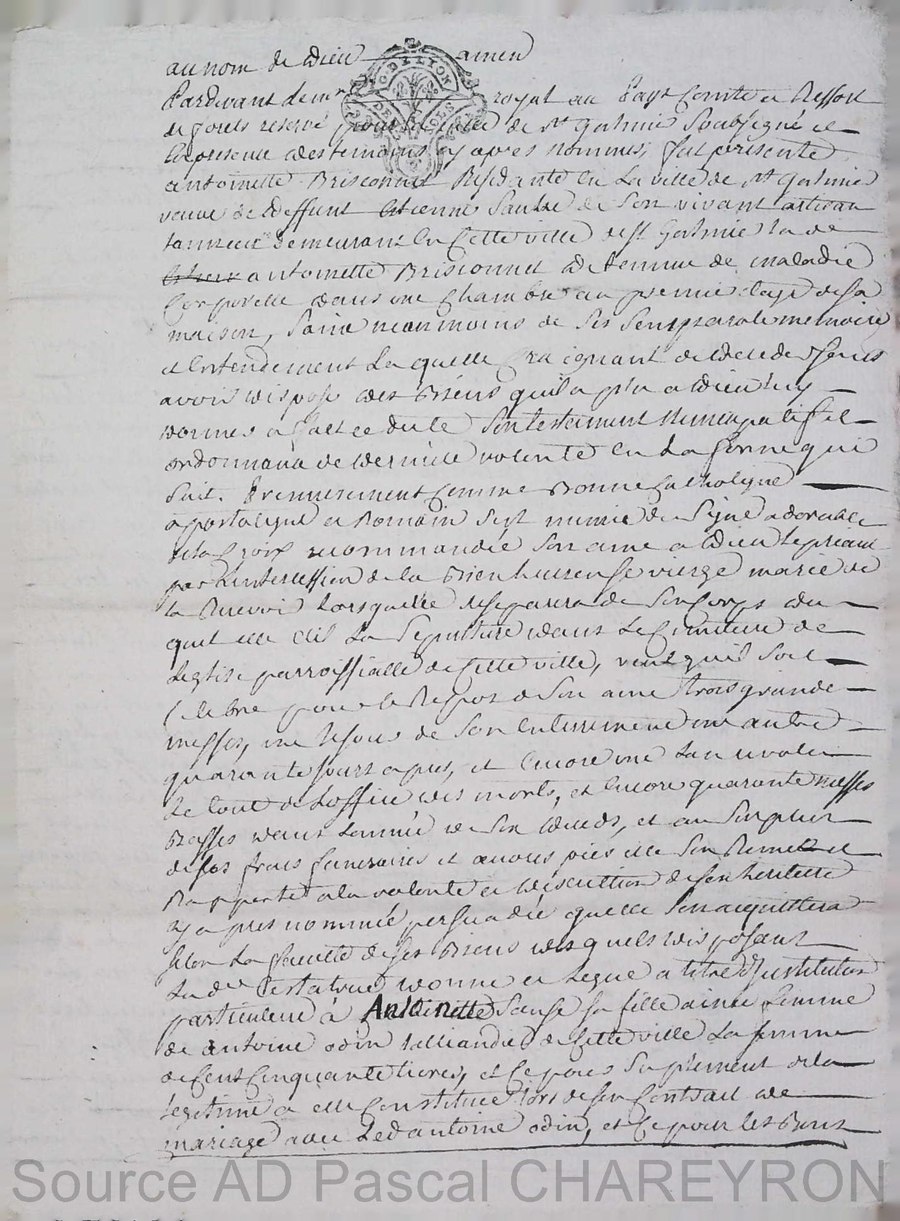 au nom de Dieu amen
Pardevant le nre royal au Pays Comté et Ressort
de forets reservé pour la ville de St Galmier Soubsigné et
En presence des temoins cy apres nommes, fut presente
antoinette Brisconnet Residante en La ville de St Galmier
veuve de deffunt Etienne Sauze de Son vivant artisan
tanneur demeurant en Cette ville de St Galmier la de
antoinette Brisconnet detenue de maladie
Corporelle dans une Chambre au premier etage de sa
maison, Saine neanmoins de Ses Sens parole memoire
et Entendement La quelle Craignant de deceder Sans
avoir dispose des Biens quil a plu a Dieu luy
donner a fait et dicté Son testament nuncupatif et
ordonnance de derniere volonté en La forme qui
Suit. Premierement Comme Bonne Catholique
apostolique et Romaine Sest munie du Signe adorable
de la Croix recommandé Son ame a Dieu le priant
par L'intercession de la Bienheureuse vierge marie de
la Recevoir Lorsquelle Se separera de Son Corps du
quel elle elit La Sepulture dans Le Cimetiere de
Leglise parroissialle de Cette ville, veut quil Soit
Celebré pour le Repos de Son ame trois grandes
messes, une le jour de Son Enterrement une autre
quarante jours apres, et Encore une Lan revolu
Le tout de Loffice des morts, et Encore quarante messes
Basses dans Lannée de Son deceds, et au Surplus
de Ses frais funeraires et oeuvres pies elle Son Remet et
Rapporte a la volonté et discretion de Son heritiere
cy apres nommée persuadée quelle Sen acquittera
Selon La faculté de Ses Biens desquels disposant
La de testatrice donne et Legue a titre d'Institution
particuliere à Antoinette Sauze Sa fille ainée femme
de antoine odin taillandier de Cette ville La Somme
de Cent Cinquante livres, et Ce pour Suplement de la
legitime a elle Constituée lors de Son Contrait de
mariage avec Led antoine odin, et Ce pour les Bons
Source AD Pascal CHAREYRON